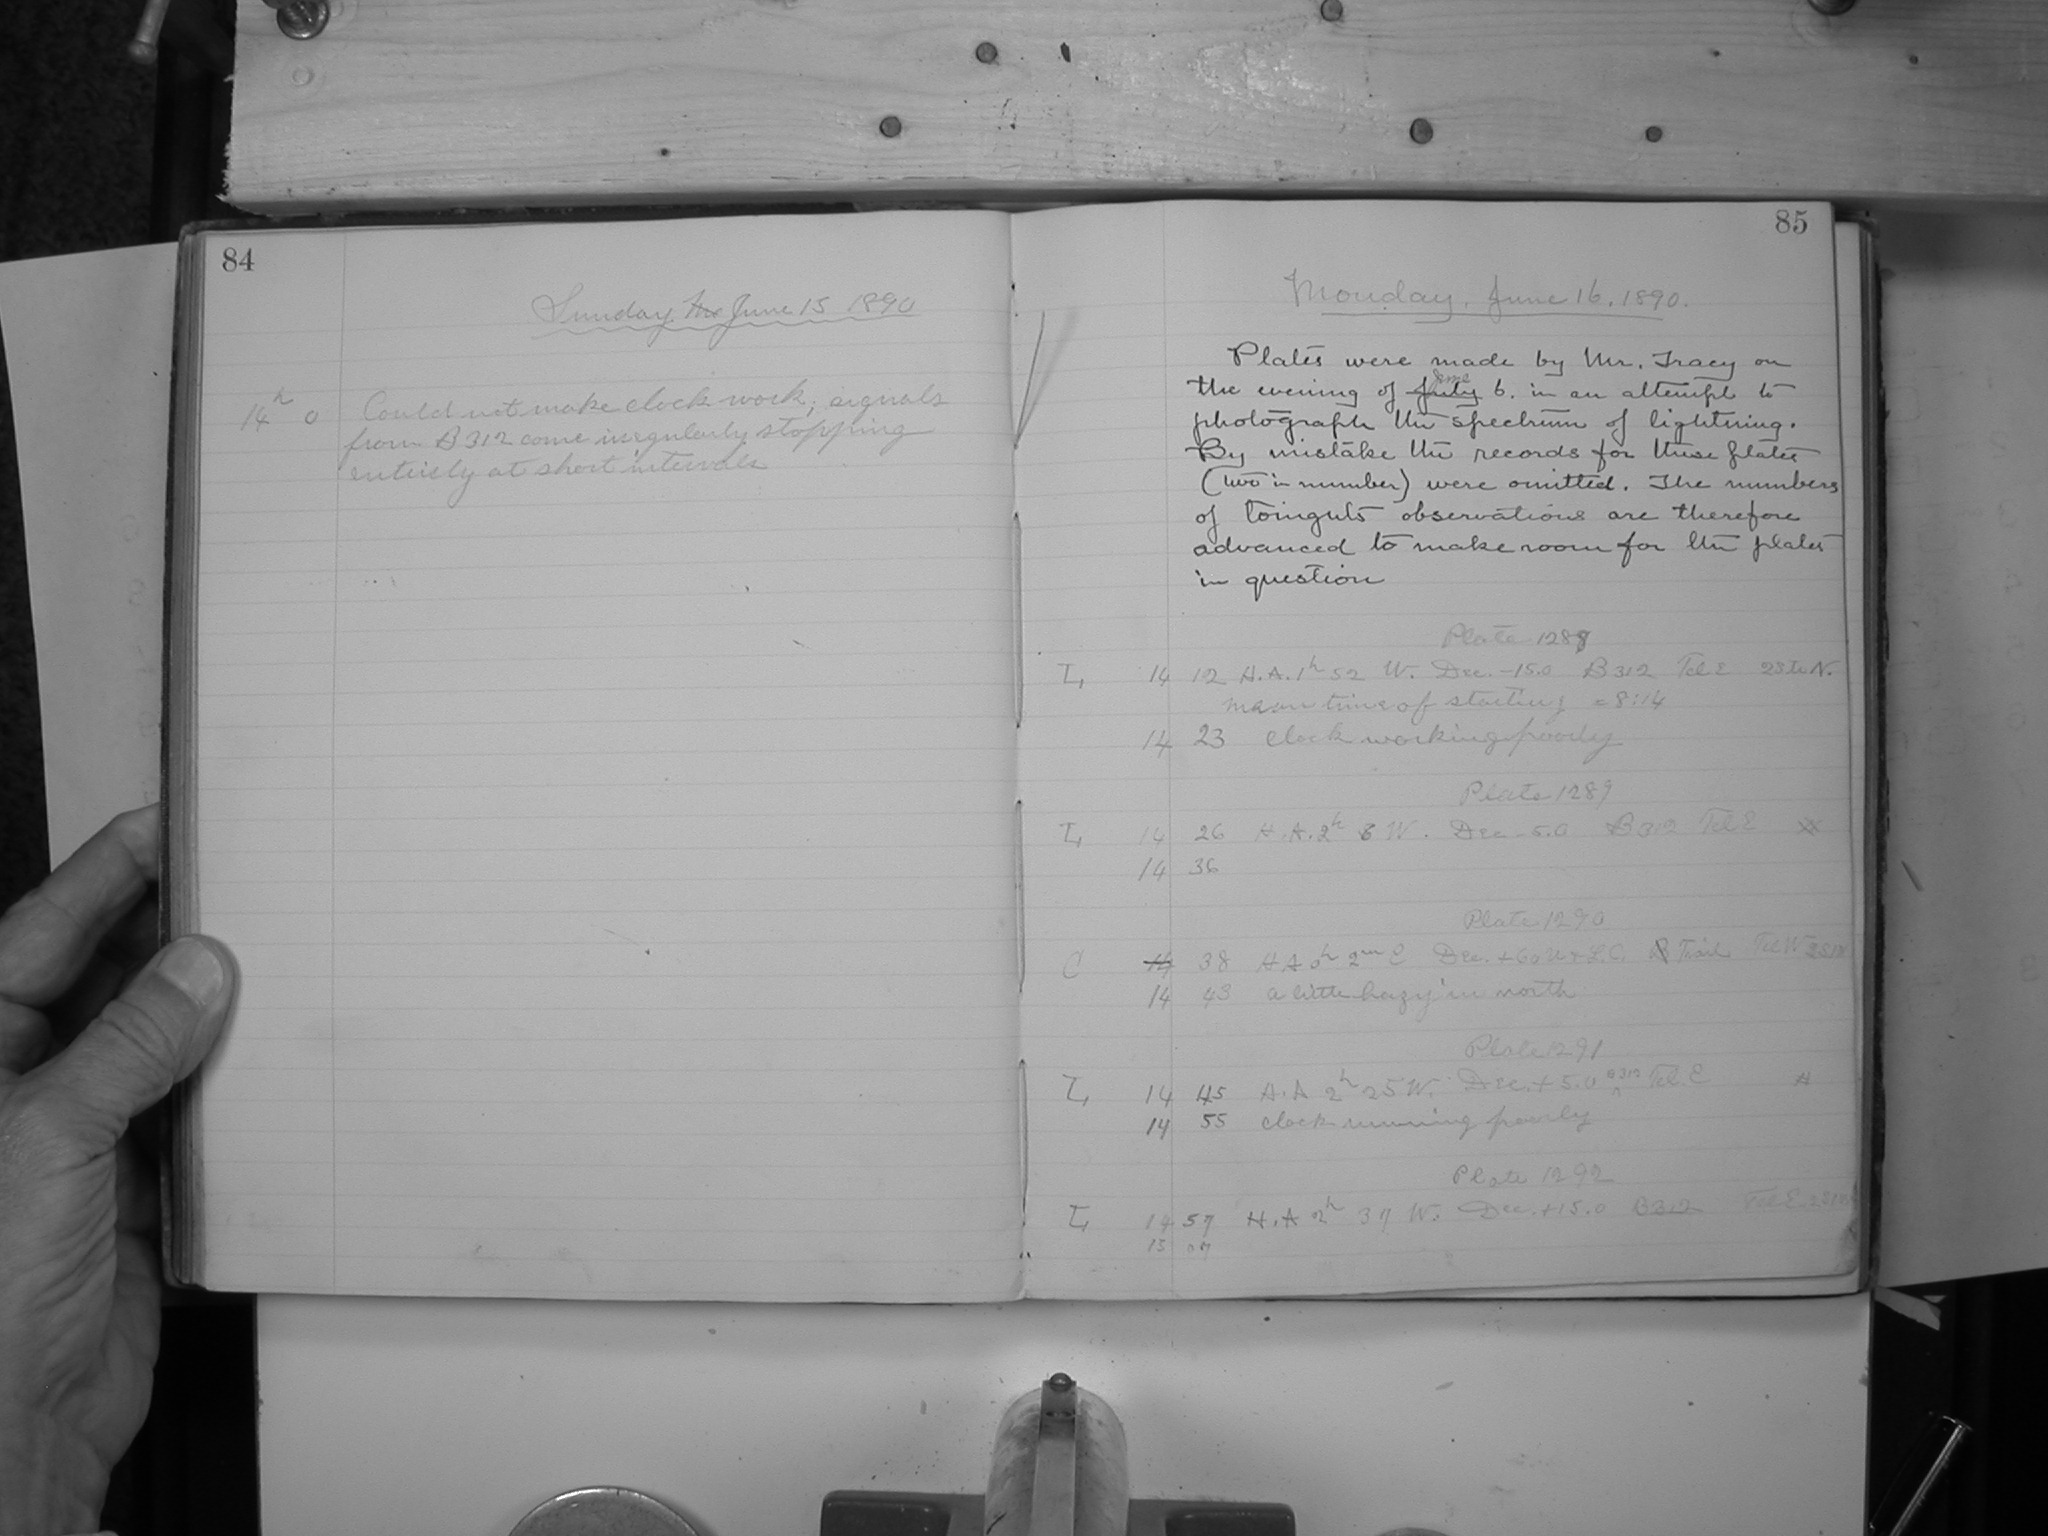 84
Sunday June 15 1890
14h 0 Could not make clock work; signals
from B312 come irregularly stopping
entirely at short intervals
85
Monday. June 16. 1890.
Plates were made by Mr. Tracy on
the evening of July June 6. in an attempt to
photograph the spectrum of lightning.
By mistake the records for these plates
(two in number) were omitted. The numbers
of tonight's observations are therefore
advanced to make room for the plates
in question
Plate 1288
I, 14 12 H.A. 1h 52 W. Dec. -15.0 B312 Tel E 28 to N.
mean time of starting = 8:14
14 23 clock working poorly
Plate 1289
I, 14 26 H.A. 2h 8 W. Dec -5.0 B312 Tel E
14 36
Plate 1290
C 14 38 H A 0h 2m E Dec. +60 U & L.C. Trail Tel W
14 43 a little hazy in north
Plate 1291
I, 14 45 H.A 2h 25 W. Dec. +5.0 B312 Tel. E
14 55 clock running poorly
Plate 1292
I, 14 57 H.A 2h 37 W. Dec. +15.0 B312 Tel E.
15 07